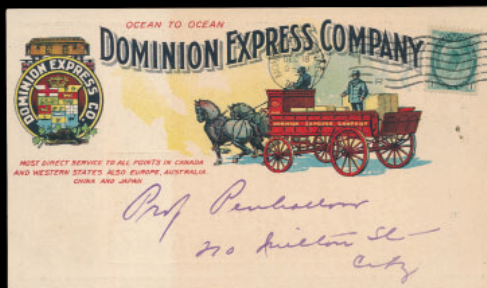 OCEAN TO OCEAN
DOMINION EXPRESS COMPANY
DOMINION EXPRESS CO
DOMINION EXPRESS COMPANY
MOST DIRECT SERVICE TO ALL POINTS IN CANADA
AND WESTERN STATES ALSO EUROPE, AUSTRALIA.
CHINA AND JAPAN
Prof Penhallow
210 Milton St
City